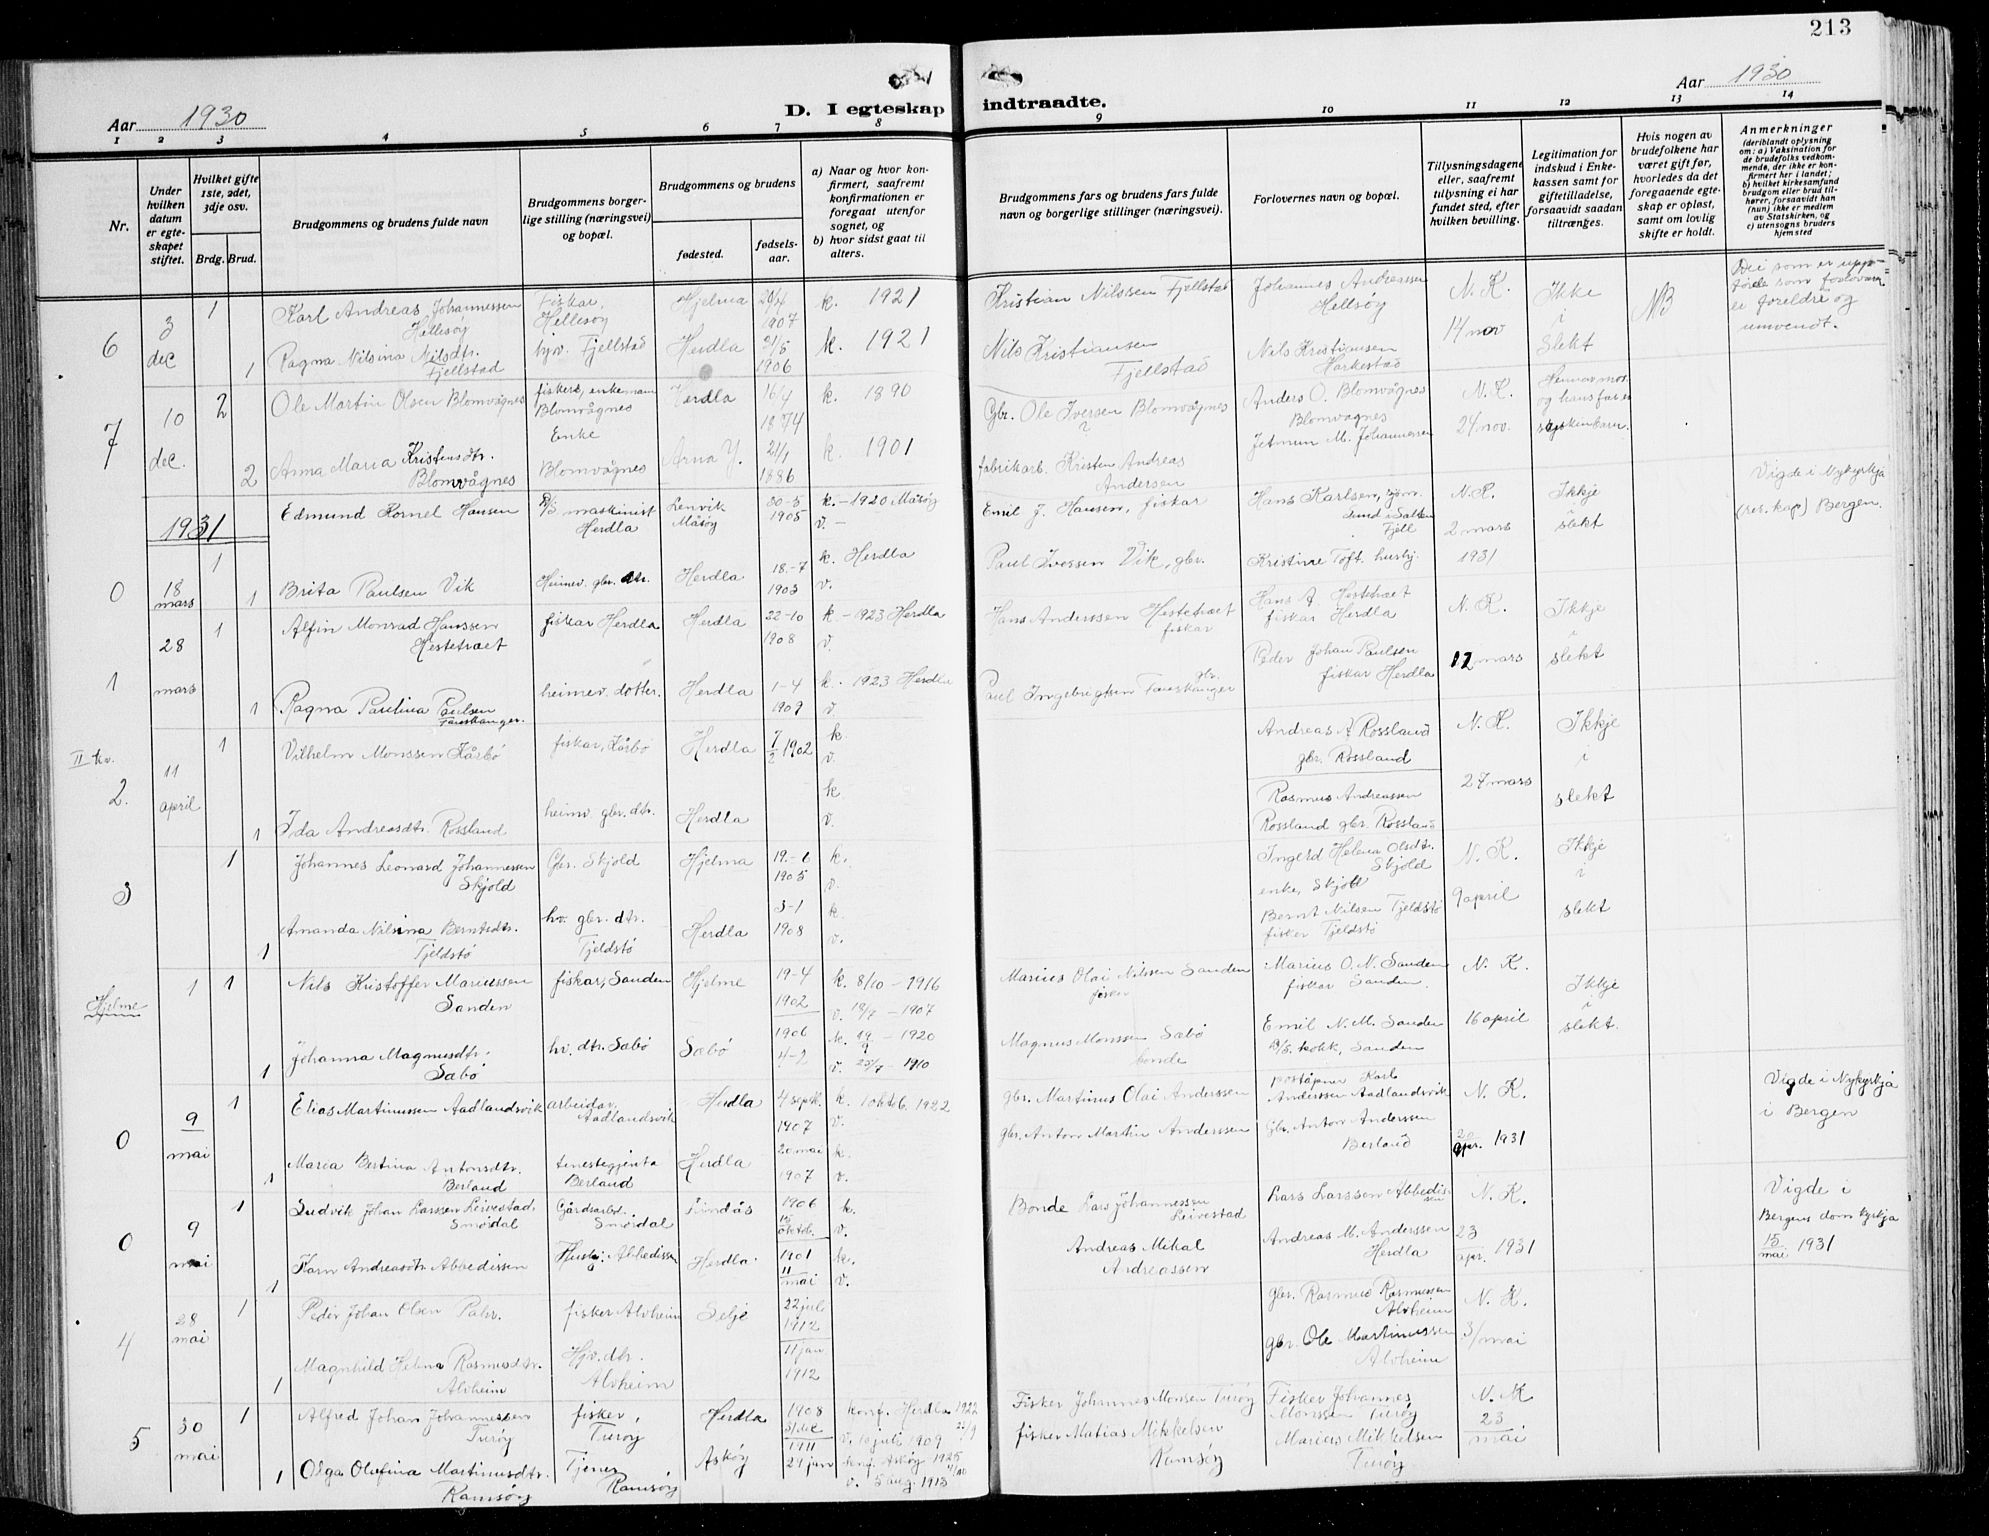 213
Aar 1930
D. I egteskap
indtraadte.
Aar 1930
1 2 3 4 5 6 7 8 9 10 11 12 13 14
Nr.
Under hvilken datum er egteskapet stiftet.
Hvilket gifte 1ste, 2det, 3dje osv.
Brdg. Brud.
Brudgommens og brudens fulde navn
Brudgommens borgerlige stilling (næringsvei) og bopæl.
Brudgommens og brudens
fødested.
fødselsaar.
a) Naar og hvor konfirmert, saafremt konfirmationen er foregaat utenfor sognet, og
b) hvor sidst gaat til alters.
Brudgommens fars og brudens fars fulde navn og borgerlige stillinger (næringsvei).
Forlovernes navn og bopæl.
Tillysningsdagene eller, saafremt tillysning ei har fundet sted, efter hvilken bevilling.
Legitimation for indskud i Enkekassen samt for giftetilladelse, forsaavidt saadan tiltrænges.
Hvis nogen av brudefolkene har været gift før, hvorledes da det foregaaende egteskap er opløst, samt om lovlig skifte er holdt.
Anmerkninger
(deriblandt oplysning om: a) Vaksination for de brudefolks vedkommende, der ikke er konfirmert her i landet; b) hvilket kirkesamfund brudgom eller brud tilhører, forsaavidt han (hun) ikke er medlem av Statskirken, og c) utensogns bruders hjemsted
6 3 dec 1 Karl Andreas Johannessen Hellesøy Fiskar, Hellesøy Hjelma 28/4 1907 k. 1921 Kristian Nilssen Fjellstad Johannes Andreassen Hellsøy N. K. 14 nov Ikke i slekt NB Dei som er uppførde som forlovarar er foreldre og umvendt.
1 Ragna Nilsina Nilsdtr. Fjellstad hjv. Fjellstad Herdla 21/8 1906 k. 1921 Nils Kristiansen Fjellstad Nils Kristiansen Harkestad
7 10 dec. 2 Ole Martin Olsen Blomvågnes fisker, enkemann Blomvågnes Herdla 16/4 1874 k. 1890 Gbr. Ole Iversen Blomvågnes Anders O. Blomvågnes Blomvagnes N. K. 24 nov. Hennar mor og hans far er søskenbarn.
2 Anna Maria Kristensdtr. Blomvågnes Enke Blomvågnes Arna Y. 21/1 1886 k. 1901 fabrikarb. Kristen Andreas Andersen Jetmun M. Johannessen
1931
0 18 mars 1 Edmund Kornel Hansen D/S maskinist Herdla Lenvik Måsøy 30-5 1905 k. – 1920 Måsøy v. – Emil J. Hansen, fiskar Hans Karlsen, Fjell N. K. 2 mars 1931 Ikkje i slekt Vigde i Nykyrkja (res. kap) Bergen.
1 Brita Paulsen Vik Heimev. gbr. dtr. Herdla 18.-7 1903 k. Herdla v. Paul Iverssen Vik, gbr. Kristine Toft husby.
1 28 mars 1 Alfin Monrad Hanssen Hestetræet fiskar Herdla Herdla 22-10 1908 k. – 1923 Herdla v. Hans Anderssen Hestetræet fiskar Hans A. Hestetræet fiskar Herdla N. K. 12 mars Ikkje i slekt
1 Ragna Paulina Paulsen Fauskanger. heimev. dotter. Herdla 1-4 1909 k. – 1923 Herdla v. Paul Ingebrigtsen Fauskanger gbr. Peder Johan Paulsen fiskar Herdla
II kv.
2. 11 april 1 Vilhelm Monssen Kårbø fiskar, Kårbø Herdla 7/2 1902 k. v. Andreas A Rossland gbr. Rossland N. K. 27 mars Ikkje i slekt
1 Ida Andreasdtr. Rossland heimv. gbr. dtr. Herdla k v. Rasmus Andreassen Rossland gbr. Rossland
3 1 Johannes Leonard Johannessen Skjold Gbr. Skjold Hjelma 19.-6 1905 k. v. Ingerd Helena Olsdtr. Skjold enke, Skjold N. K. 9 april Ikkje i slekt
1 Amanda Nilsina Berntsdtr. Tjeldstø hv. gbr. dtr. Tjeldstø Herdla 3-1 1908 k. v. Bernt Nilsen Tjeldstø fisker Tjeldstø
Hjelme 1 1 Nils Kristoffer Mariussen Sanden fiskar, Sanden Hjelme 19-4 1902 k. 8/10 – 1916 v. 18/7 – 1907 Marius Olai Nilssen Sanden fisker Marius O. N. Sanden fiskar Sanden. N. K. 16 april Ikkje i slekt.
1 Johanna Magnusdtr. Sæbø hv. dtr. Sæbø Sæbø 1906 4-2 k. 19/9 – 1920 v. 25/7 – 1910 Magnus Monssen Sæbø bonde Emil N. M. Sanden D/S. kokk, Sanden
0 9 mai 1 Elias Martinussen Aadlandsvik arbeidar, Aadlandsvik Herdla 4 sept. 1907 k. 1 oktob. 1922 v. gbr. Martinus Olai Anderssen poståpner Karl Anderssen Aadlandsvik N. K. 20 apr. 1931 Vigde i Nykyrkja i Bergen
1 Maria Bertina Antonsdtr. Berland tenestegjenta Berland Herdla 20 mai 1907 k. v. gbr. Anton Martin Anderssen Gbr. Anton Anderssen Berland
0 9 mai 1 Ludvik Johan Larssen Leivestad, Smørdal Gårdsarbd. Smørdal Lindås 1906 15 oktob. k. v. Bonde Lars Johannessen Leivestad Lars Larssen Abbedissen N. K. 23 apr. 1931 Vigde i Bergens domkyrkja 15 mai 1931
1 Karn Andreasdtr Abbedissen Husbj. Abbedissen Herdla. 1901 11 mai k. v. Andreas Mikal Andreassen Andreas M. Anderssen Herdla
4 28 mai 1 Peder Johan Olsen fisker Alvheim Selje 22 juli 1912 gbr. Rasmus Rasmussen Alvheim N. K. 3/mai
1 Magnhild Helena Rasmusdtr. Alvheim Hjv. dtr. Alvheim 11 jan 1912 gbr. Ole Martinussen Alvheim
5 30 mai 1 Alfred Johan Johannessen Turøy fisker, Turøy Herdla 1908 31/dec konf. Herdla 1922 22/9 v. 10 juli 1909 Fisker Johannes Monsen Turøy Fisker Johannes Monssen Turøy N. K. 23 mai
1 Olga Olufina Martinusdtr. Ramsøy Tjener Ramsøy Askøy 1911 29 jan konf. Askøy 1925 v. 5 aug. 1913 fisker Matias Mikkelsen Ramsøy Marius Mikkelsen Turøy